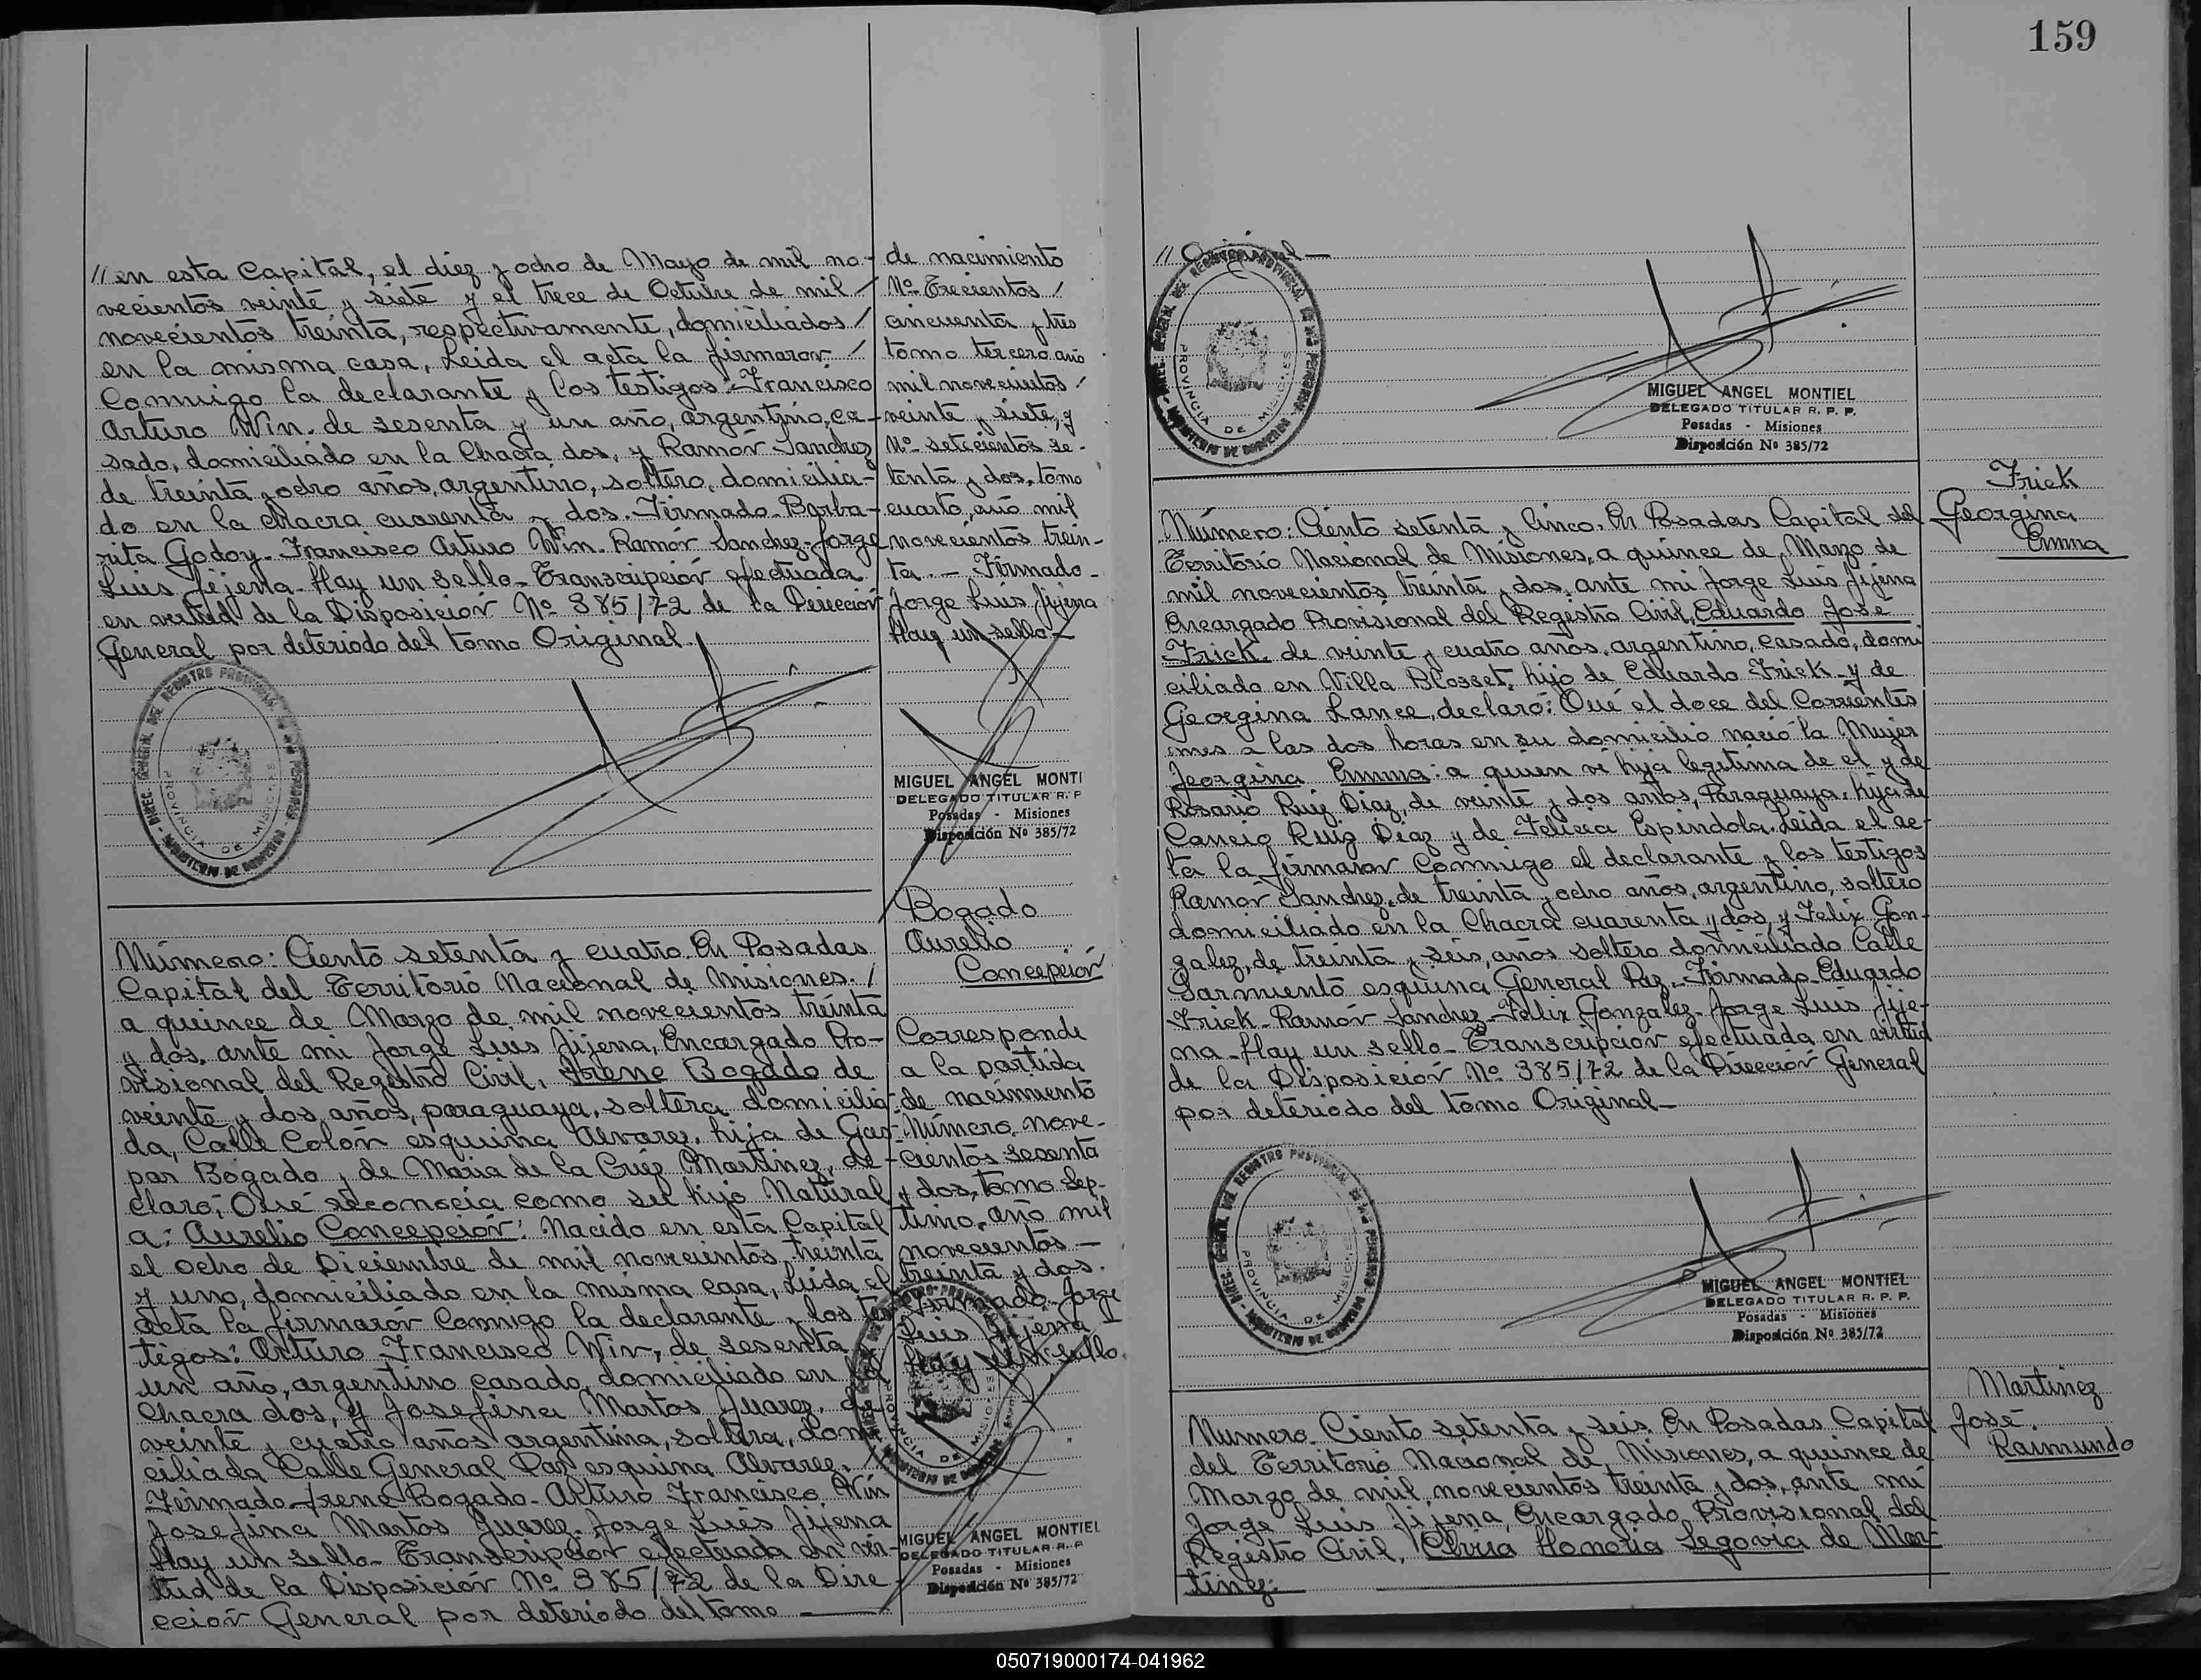 // en esta Capital, el diez y ocho de Mayo de mil no-
vecientos veinte y siete y el trece de Octubre de mil /
novecientos treinta, respectivamente, domiciliados /
en la misma casa, Leida el acta la firmaron /
Conmigo la declarante y los testigos: Francisco
Arturo Win. de sesenta y un año, argentino, ca-
sado, domiciliado en la Chacra dos, y Ramón Sanchez
de treinta y ocho años, argentino, soltero, domicilia-
do en la chacra cuarenta y dos. Firmado - Barba-
rita Godoy - Francisco Arturo Win - Ramón Sanchez - Jorge
Luis Jijena - Hay un sello - Transcripción efectuada
en virtud de la Disposición Nº 385/72 de la Dirección
General por deteriodo del tomo Original.
de nacimiento
Nº Trecientos /
cincuenta y tres
tomo tercero año
mil novecientos /
veinte y siete, y
Nº setecientos se-
tenta y dos, tomo
cuarto, año mil
novecientos trein-
ta. — Firmado -
Jorge Luis Jijena
Hay un sello -
DIREC. GENERAL DEL REGISTRO PROVINCIAL DE LAS PERSONAS - MINISTERIO DE GOBIERNO
PROVINCIA DE MISIONES
MIGUEL ANGEL MONTI
DELEGADO TITULAR R. P
Posadas - Misiones
Disposición Nº 385/72
Número: Ciento setenta y cuatro. En Posadas
Capital del Territorio Nacional de Misiones. /
a quince de Marzo de mil novecientos treinta
y dos, ante mi Jorge Luis Jijena, Encargado Pro-
visional del Registro Civil, Irene Bogado de
veinte y dos años, paraguaya, soltera domicilia-
da, Calle Colón esquina Alvarez, hija de Gas-
par Bogado y de Maria de la Cruz Martinez, de-
claró; Qué reconocía como su hijo Natural
a: Aurelio Concepción: Nacido en esta Capital
el ocho de Diciembre de mil novecientos treinta
y uno, domiciliado en la misma casa, Leida el
acta la firmarón Conmigo la declarante y los tes
tigos: Arturo Francisco Win, de sesenta y
un año, argentino casado domiciliado en la
Chacra dos, y Josefina Martos Juarez, de
veinte y cuatro años argentina, soltera, domi
ciliada Calle General Paz esquina Alvarez. /
Firmado - Irene Bogado - Arturo Francisco Win
Josefina Martos Juarez. Jorge Luis Jijena
Hay un sello - Transcripción efectuada en vir-
tud de la Disposición Nº 385/72 de la Dire-
cción General por deteriodo del tomo —
Bogado
Aurelio
Concepción
Corresponde
a la partida
de nacimiento
Número nove-
cientos sesenta
y dos, Tomo Sep-
timo, año mil
novecientos —
treinta y dos.
Firmado - Jorge
Luis Jijena
Hay un sello.
DIREC. GENERAL DEL REGISTRO PROVINCIAL DE LAS PERSONAS - MINISTERIO DE GOBIERNO
PROVINCIA DE MISIONES
MIGUEL ANGEL MONTIEL
DELEGADO TITULAR R. P
Posadas - Misiones
Disposición Nº 385/72
159
// Original —
DIREC. GENERAL DEL REGISTRO PROVINCIAL DE LAS PERSONAS - MINISTERIO DE GOBIERNO
PROVINCIA DE MISIONES
MIGUEL ANGEL MONTIEL
DELEGADO TITULAR R. P. P.
Posadas - Misiones
Disposición Nº 385/72
Frick
Georgina
Emma
Número: Ciento setenta y Cinco. En Posadas Capital del
Territorio Nacional de Misiones, a quince de Marzo de
mil novecientos treinta y dos, ante mi Jorge Luis Jijena
Encargado Provisional del Registro Civil, Eduardo José
Frick, de veinte y cuatro años, argentino, casado, domi
ciliado en Villa Blosset, hijo de Eduardo Frick y de
Georgina Lance, declaró: Qué el doce del Corrientes
mes a las dos horas en su domicilio nació la Mujer
Jeorgina Emma: a quien vi hija legitima de el y de
Rosario Ruiz Diaz, de veinte y dos años, Paraguaya, hija de
Cancio Ruiz Diaz y de Felicia Espindola. Leida el ac-
ta la firmaron Conmigo el declarante y los testigos
Ramón Sanchez, de treinta y ocho años, argentino, soltero
domiciliado en la Chacra cuarenta y dos, y Felix Gon-
zalez, de treinta y seis, años soltero domiciliado Calle
Sarmiento esquina General Paz. - Firmado - Eduardo
Frick - Ramón Sanchez - Felix Gonzalez - Jorge Luis Jije-
na - Hay un sello - Transcripción efectuada en virtud
de la Disposición Nº 385/72 de la Dirección General
por deteriodo del tomo Original —
DIREC. GENERAL DEL REGISTRO PROVINCIAL DE LAS PERSONAS - MINISTERIO DE GOBIERNO
PROVINCIA DE MISIONES
MIGUEL ANGEL MONTIEL
DELEGADO TITULAR R. P. P.
Posadas - Misiones
Disposición Nº 385/72
Martinez
José
Raimundo
Numero Ciento setenta y seis. En Posadas Capital
del Territorio Nacional de Misiones, a quince de
Marzo de mil novecientos treinta y dos, ante mi
Jorge Luis Jijena, Encargado Provisional del
Registro Civil, Elvira Honoria Segovia de Mar-
tinez:
050719000174-041962